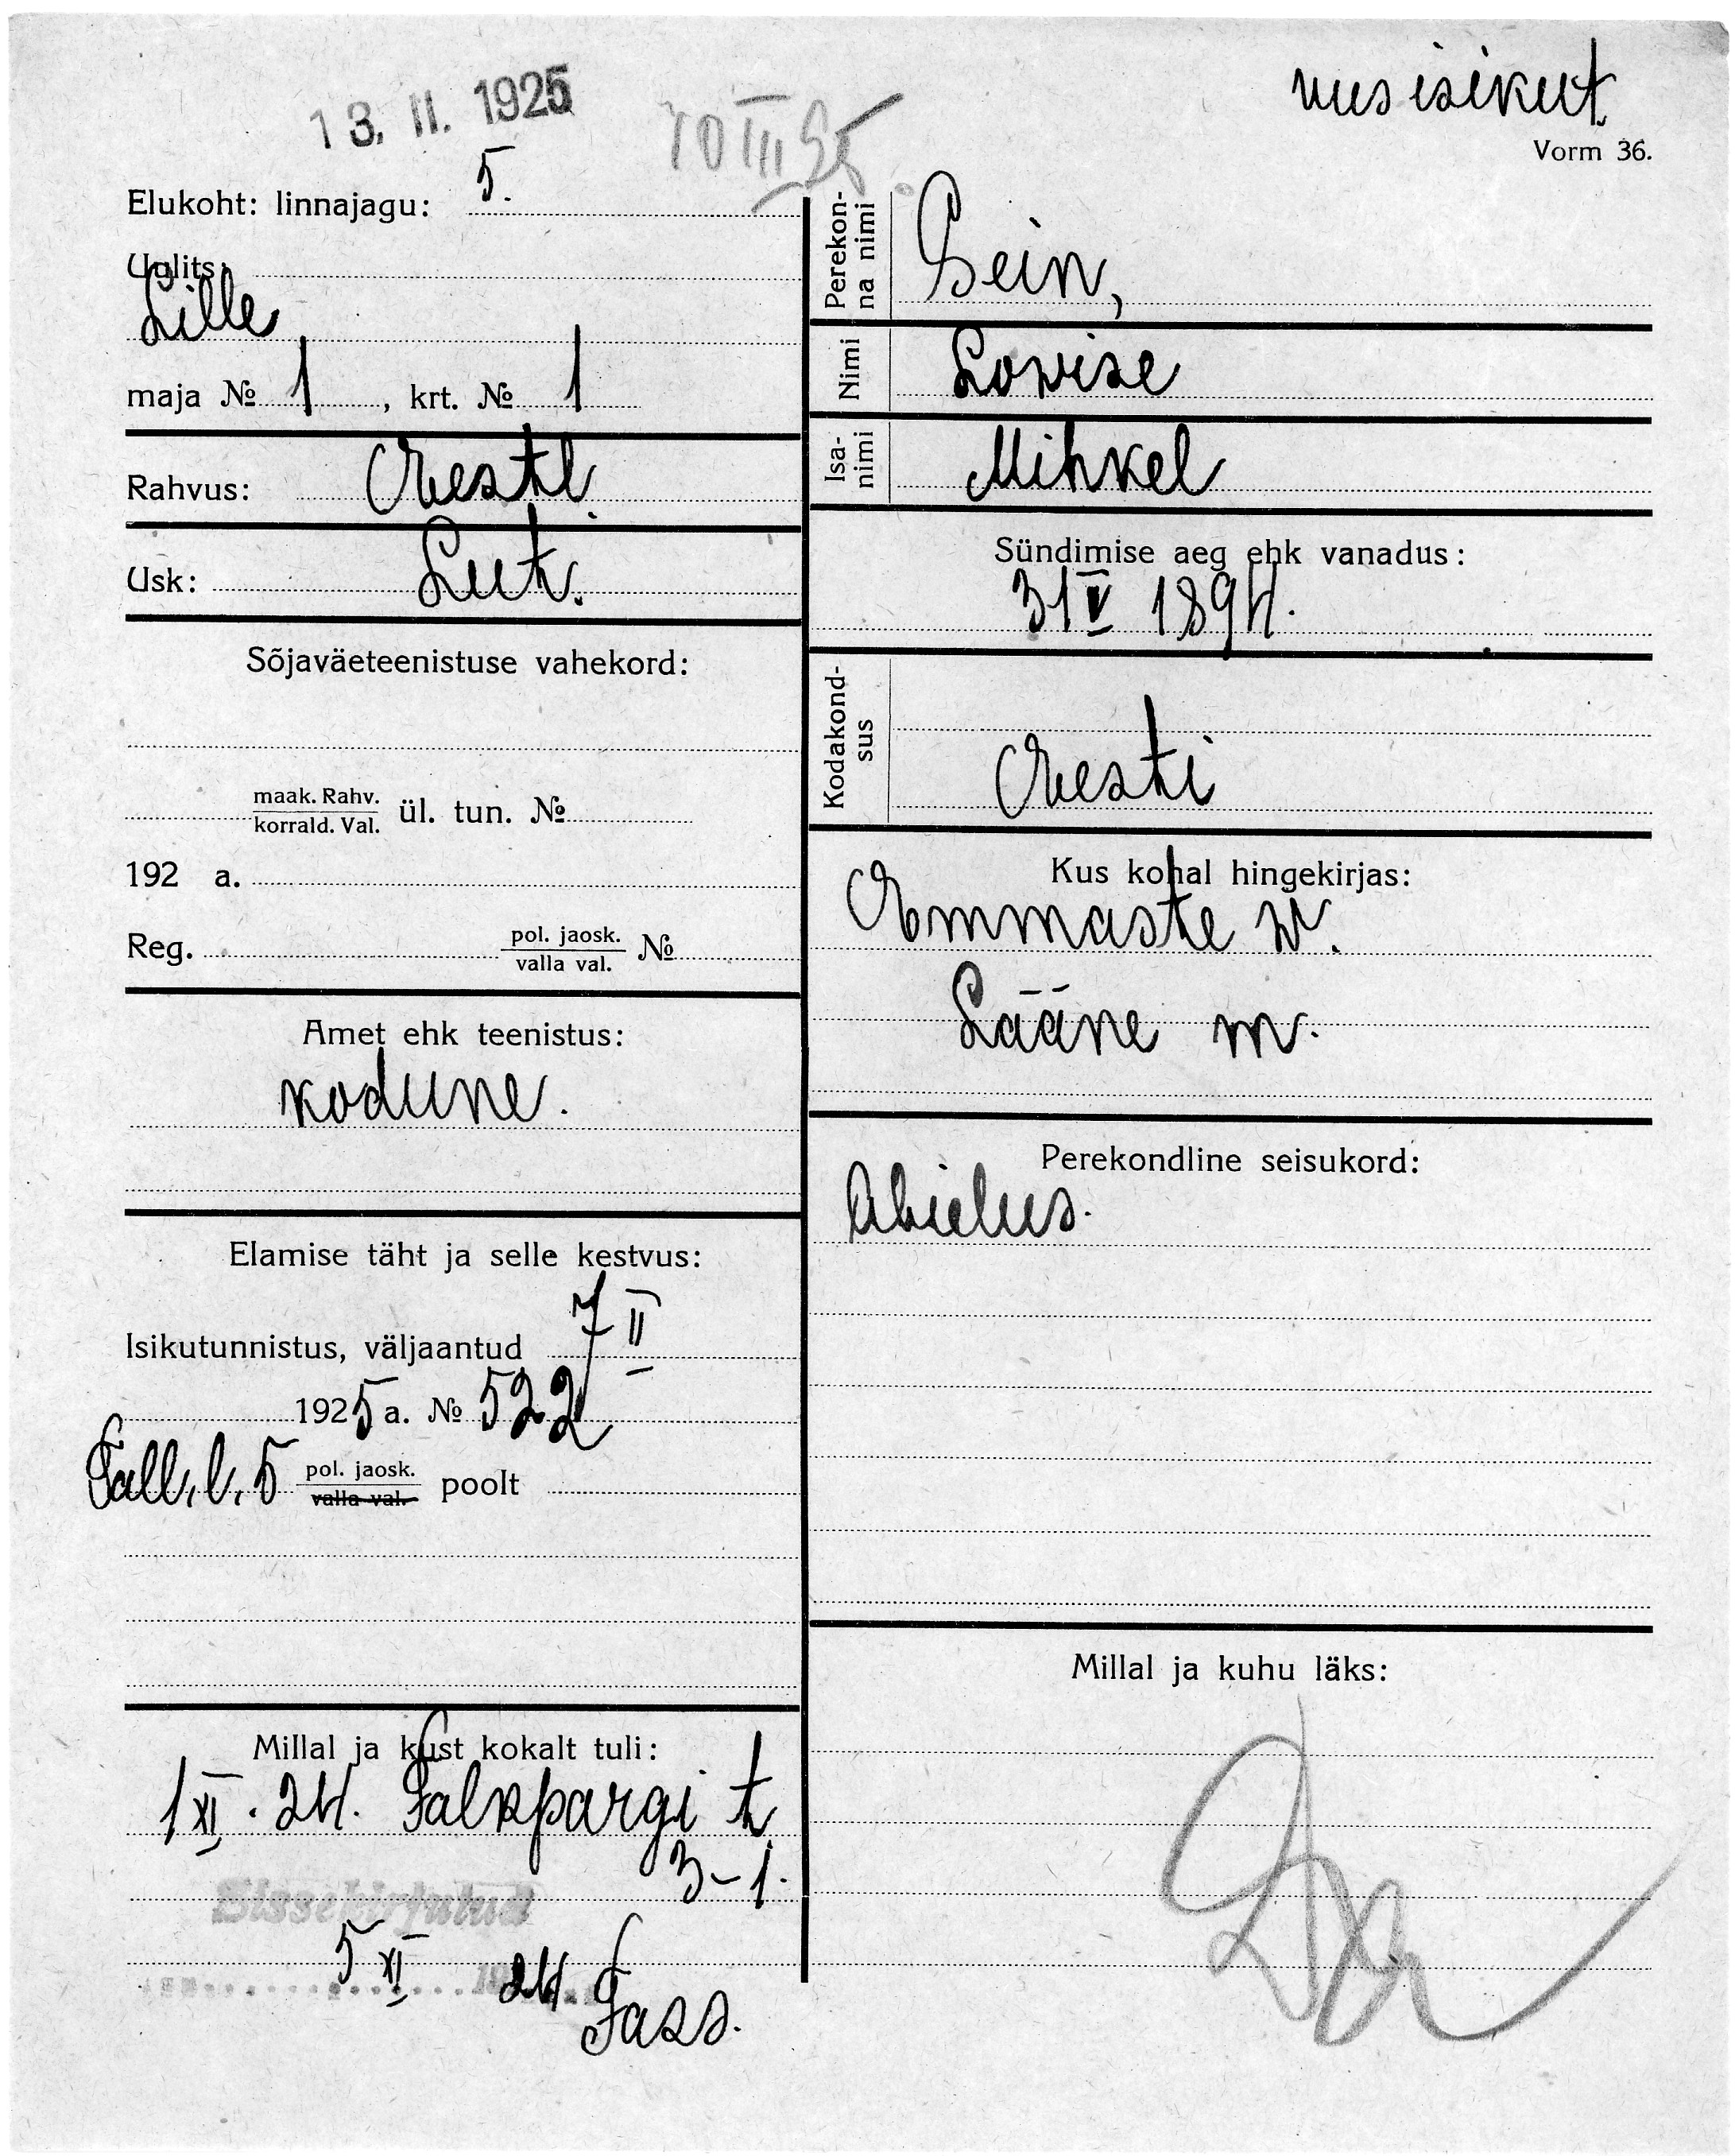 uus isikut.
13. II. 1925
10 III 25
Vorm 36.
Elukoht: linnajagu: 5.
Uulits:
Lille
maja № 1, krt. № 1
Rahvus: Eestl.
Usk: Lut.
Sõjaväeteenistuse vahekord:
maak. Rahv.
korrald. Val. ül. tun. №
192 a.
Reg. pol. jaosk.
valla val. №
Amet ehk teenistus:
kodune.
Elamise täht ja selle kestvus:
Isikutunnistus, väljaantud 7 II
1925 a. № 522
Tall. l. 5 pol. jaosk.
valla val. poolt
Millal ja kust kokalt tuli:
1 XI. 24. Falkpargi t.
3-1.
Sissekirjutud
5 XI 24.
Perekon-
na nimi Sein,
Nimi Lowise
Isa-
nimi Mihkel
Sündimise aeg ehk vanadus:
31 V 1894.
Kodakond-
sus Eesti
Kus kohal hingekirjas:
Emmaste w.
Lääne m.
Perekondline seisukord:
Abielus.
Millal ja kuhu läks: